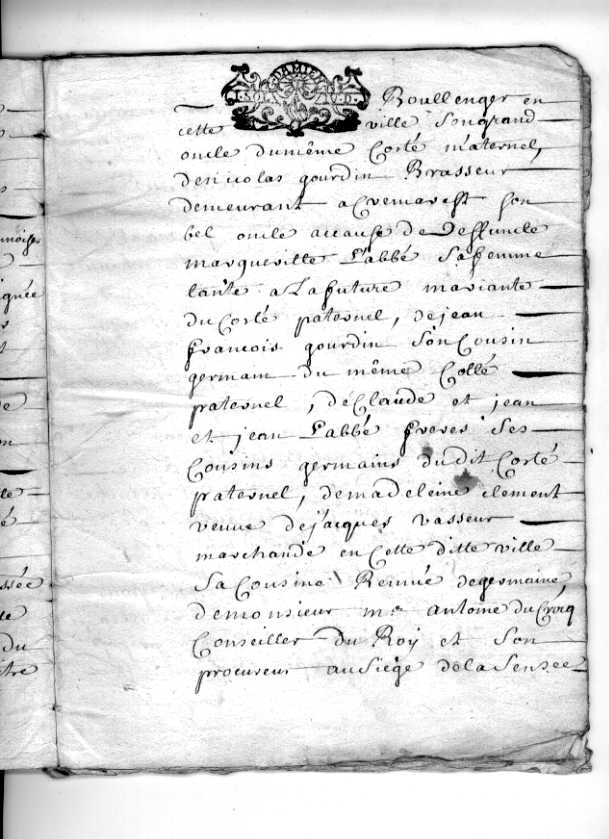 DAMIEN
Boullenger en
cette ville son grand
oncle du même Costé maternel,
de nicolas gourdin Brasseur
demeurant a son
bel oncle accause de deffuncte
margueritte L'abbé Sa femme
tante a La future mariante
du Costé paternel, de jean
francois gourdin Son Cousin
germain du même Collé
paternel, de Claude et jean
et jean L'abbé freres Ses
Cousins germains du dit Costé
paternel, de madeleine clement
veuve de jacques vasseur
marchande en Cette ditte ville
Sa Cousine Remuée de germaine,
de monsieur me antoine du Crocq
Conseiller du Roy et Son
procureur au Siège de la Senzee
noise
gnée
de
on
lle
é
ssée
te
du
itre